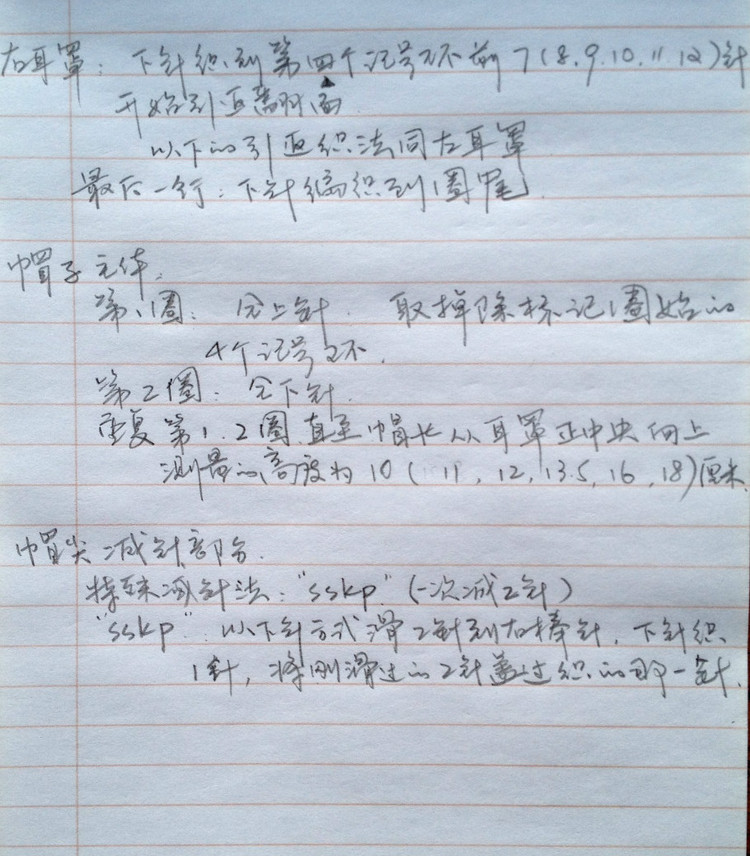 右耳罩：下针织到第四个记号环前7(8,9,10,11,12)针
开始引返
以下的引返织法同左耳罩
最后一行：下针编织到圈尾
帽子主体：
第1圈：全上针. 取掉除标记圈始的
4个记号环.
第2圈：全下针.
重复第1、2圈直至帽长从耳罩正中央向上
测量的高度为10(11,12,13.5,16,18)厘米.
帽尖减针部分.
特殊减针法："sskp"(一次减2针)
"sskp"：以下针方式滑2针到右棒针,下针织
1针,将刚滑过的2针盖过织的那一针.